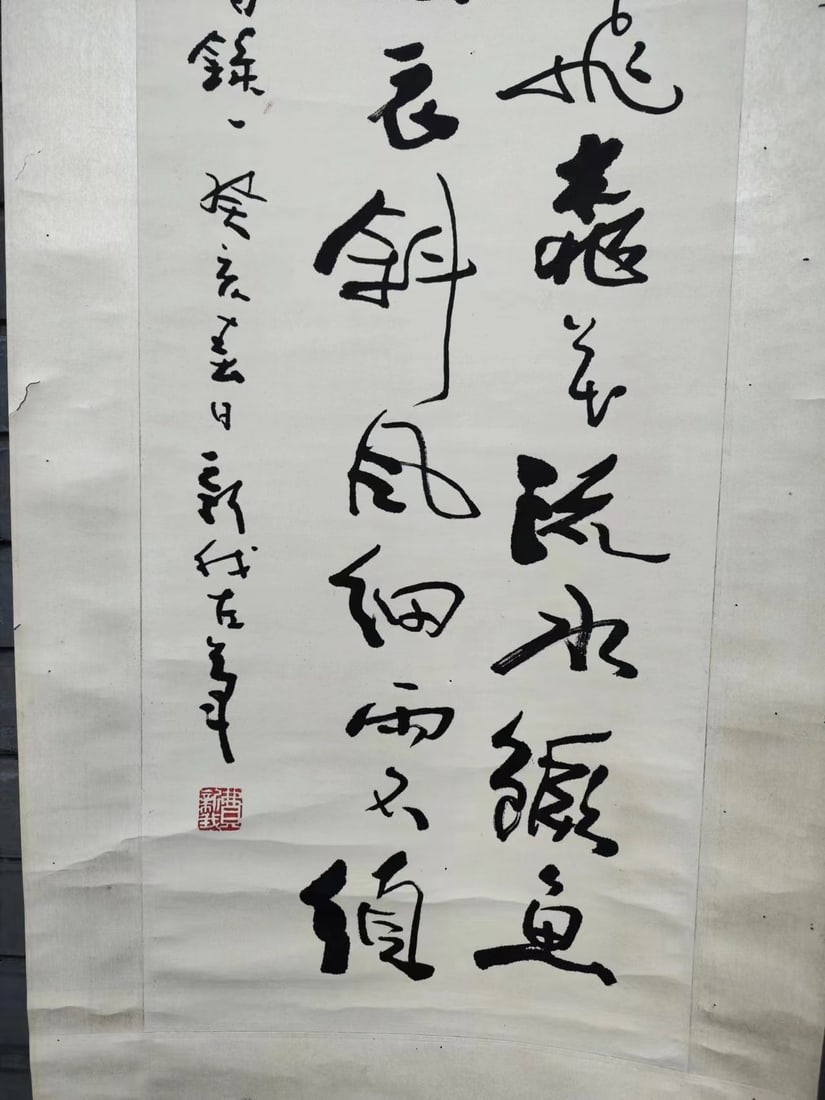 飛桃花流水鱖魚
衣斜風細雨不須
錄一癸亥春日新我左筆
費新我